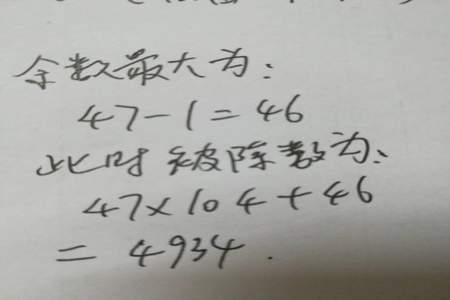 余数最大为:
47-1=46
此时被除数为、
47×104+46
=4934.